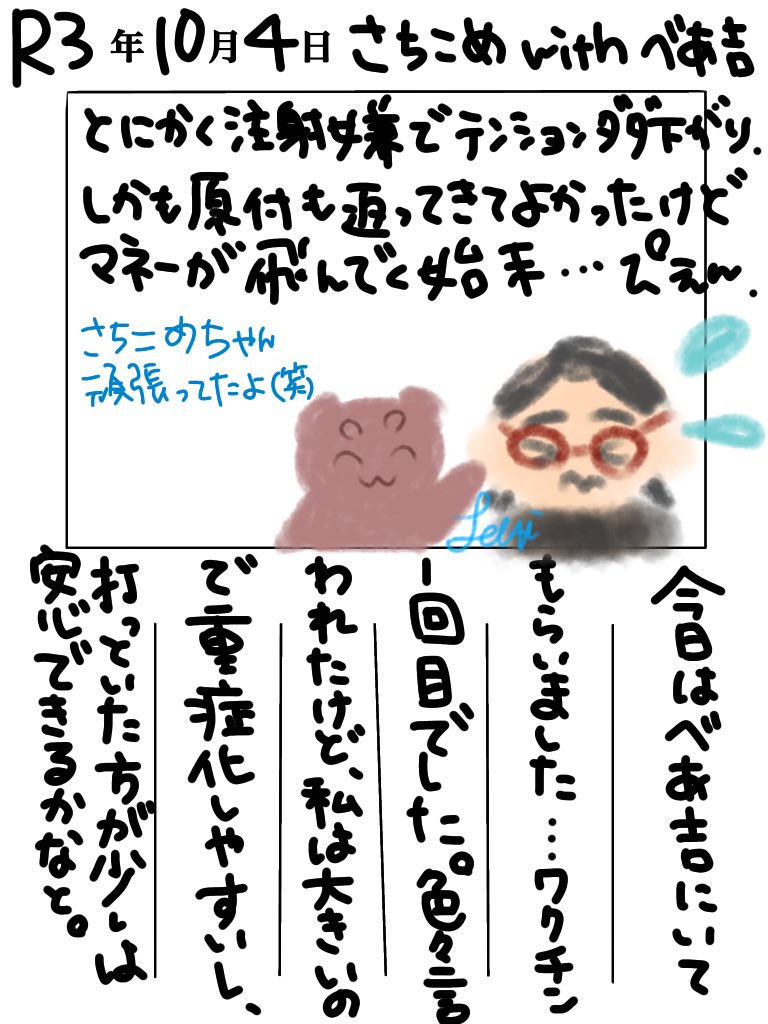 R3年10月4日 さちこめ with べあ吉
とにかく注射嫌でテンションダダ下がり.
しかも原付も返ってきてよかったけど
マネーが飛んでく始末…ぴえん.
さちこめちゃん
頑張ってたよ(笑)
今日はべあ吉にいて
もらいました…ワクチン
1回目でした。色々言
われたけど、私は大きいの
で重症化しやすいし、
打っといた方が少しは
安心できるかなと。